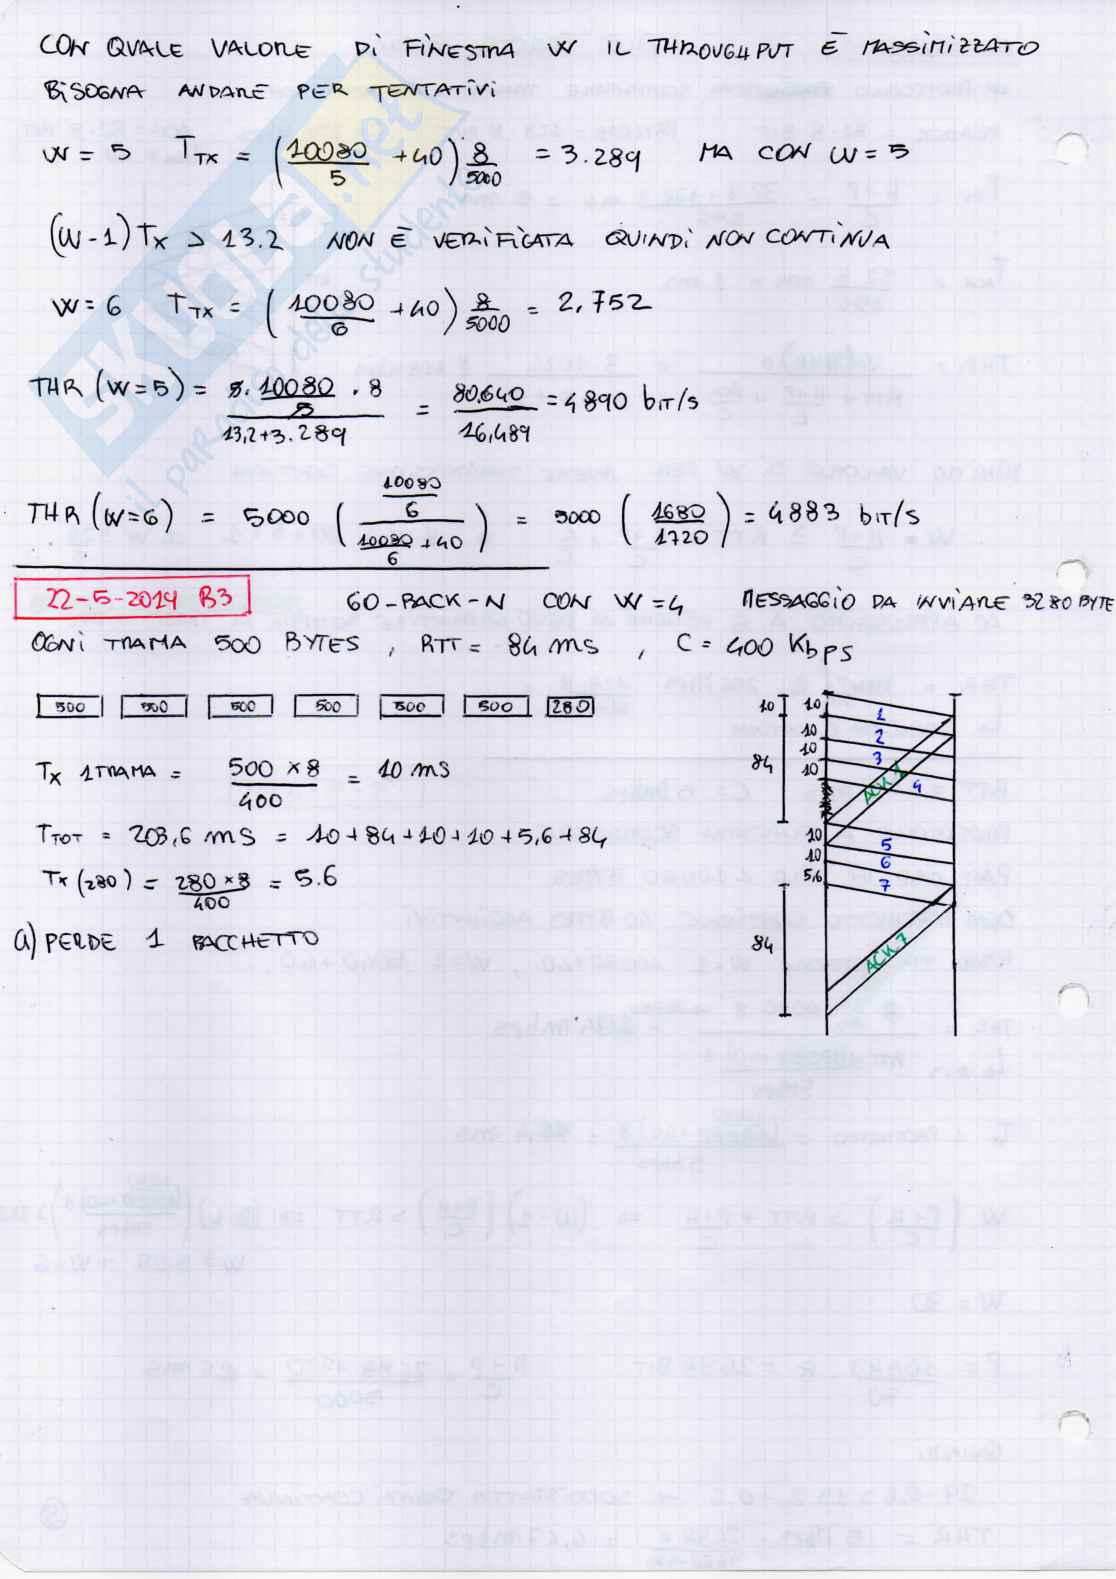 CON QUALE VALORE DI FINESTRA W IL THROUGHPUT È MASSIMIZZATO
BISOGNA ANDARE PER TENTATIVI
W = 5 T_TX = (10080/5 + 40) 8/5000 = 3.289 MA CON W = 5
(W-1) Tx > 13.2 NON È VERIFICATA QUINDI NON CONTINUA
W = 6 T_TX = (10080/6 + 40) 8/5000 = 2,752
THR (W=5) = (5 · 10080/5 · 8)/(13,2+3.289) = 80.640/16,489 = 4890 bit/s
THR (W=6) = 5000 ((10080/6)/(10080/6 + 40)) = 5000 (1680/1720) = 4883 bit/s
22-5-2014 B3 GO-BACK-N CON W=4 MESSAGGIO DA INVIARE 3280 BYTE
OGNI TRAMA 500 BYTES, RTT = 84 ms, C = 400 Kbps
500 500 500 500 500 500 280
Tx 1 TRAMA = (500 x 8)/400 = 10 ms
T_TOT = 203,6 ms = 10+84+10+10+5,6+84
Tx (280) = (280 x 8)/400 = 5.6
a) PERDE 1 PACCHETTO
10 10 1
10 2
10 3
84 10 4
ACK 1
10 5
10 6
5,6 7
84 ACK 7
SKUOLA.net
il paradiso dello studente